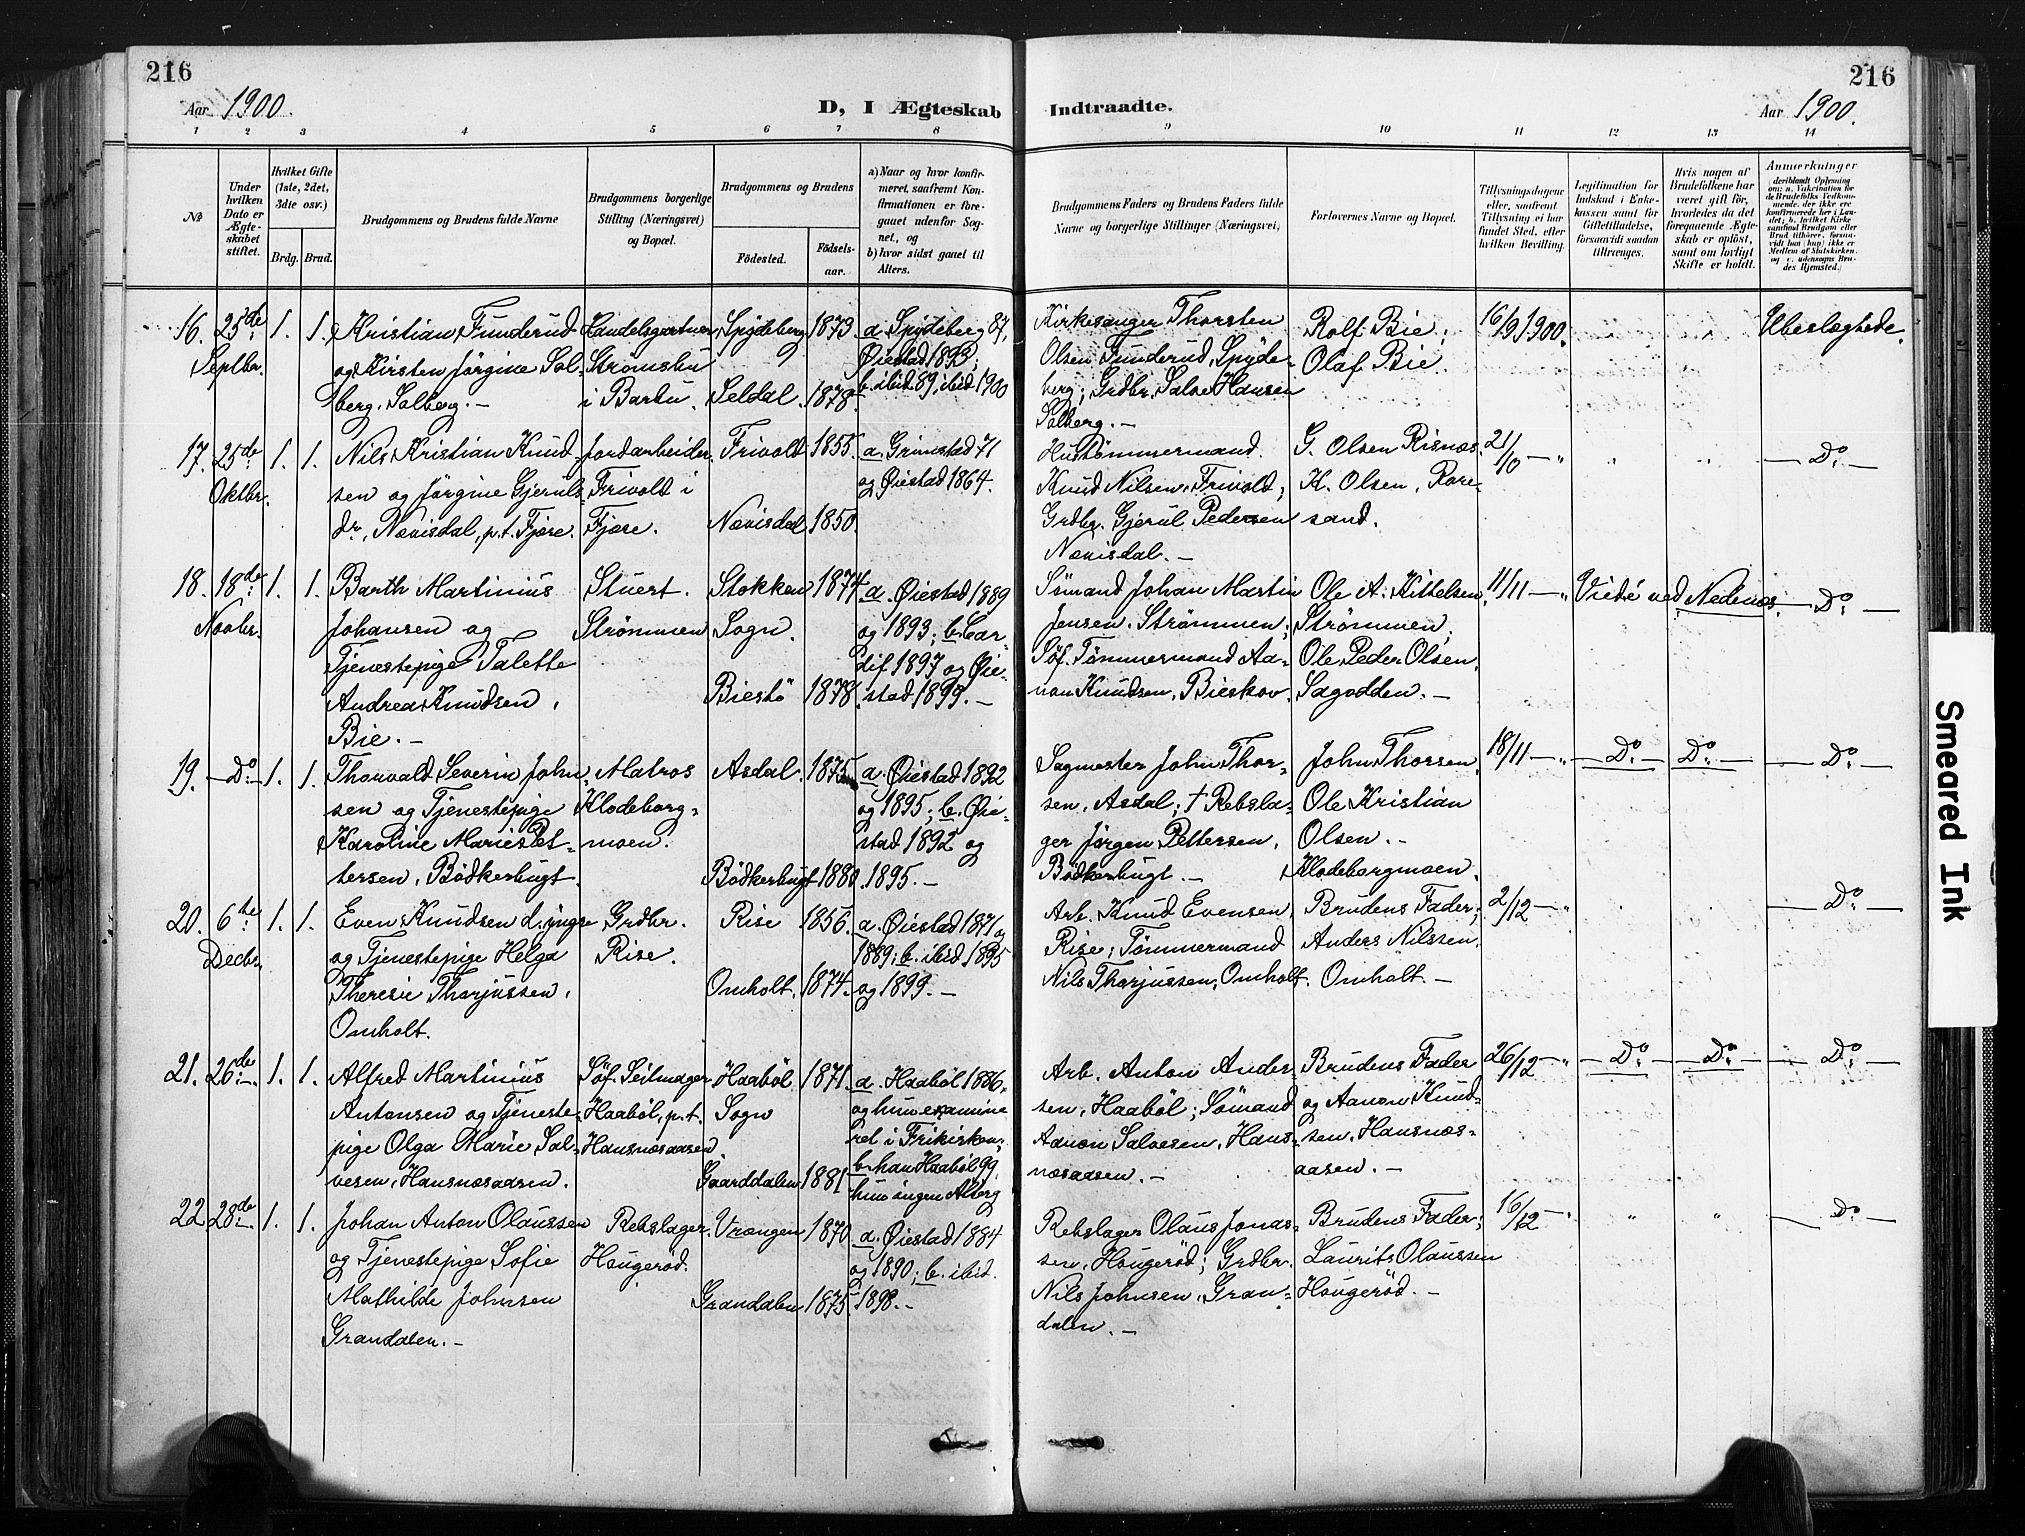 216
216
Aar 1900.
D, I Ægteskab Indtraadte.
Aar 1900.
1 2 3 4 5 6 7 8 9 10 11 12 13 14
No
Under hvilken Dato er Ægteskabet stiftet.
Hvilket Gifte (1ste, 2det, 3die osv.)
Brdg. Brud.
Brudgommens og Brudens fulde Navne
Brudgommens borgerlige Stilling (Næringsvei) og Bopæl.
Brudgommens og Brudens
Fødested.
Fødselsaar.
a) Naar og hvor konfirmeret, saafremt Konfirmationen er foregaaet udenfor Sognet, og
b) hvor sidst gaaet til Alters.
Brudgommens Faders og Brudens Faders fulde Navne og borgerlige Stillinger (Næringsvei)
Forlovernes Navne og Bopæl.
Tillysningsdagene eller, saafremt Tillysning ei har fundet Sted, efter hvilken Bevilling.
Legitimation for Indskud i Enkekassen samt for Giftetilladelse, forsaavidt saadan tiltrænges.
Hvis nogen af Brudefolkene har været gift før, hvorledes da det foregaaende Ægteskab er opløst, samt om lovligt Skifte er holdt.
Anmærkninger
16. 25de Septbr. 1. 1.
Kristian Funderud
og Kirsten Jörgine Sol-
berg, Solberg. –
Handelsgartner,
Strömsbu
i Barbu.
Spydeberg 1873
Seldal. 1878.
a. Spydeberg 87,
Øiestad 1893;
b. ibid 89, ibid. 1900
Kirkesanger Thorsten
Olsen Funderud, Spyde-
berg; Grdbr. Salve Hansen
Solberg. –
Rolf Bie;
Olaf Bie.
16/9 1900.
Ubeslægtede.
17. 25de Oktbr. 1. 1.
Nils Kristian Knud-
sen og Jörgine Gjeruls-
dr, Nævisdal, p.t. Fjære.
Jordarbeider.
Frivold i
Fjære.
Frivold 1855.
Nævisdal 1850.
a. Grimstad 71
og Øiestad 1864.
Hustømmermand
Knud Nilsen, Frivold;
Grdbr. Gjerul Pedersen
Nævisdal. –
G. Olsen Risnæs.
H. Olsen, Rore-
sand.
21/10 – "
– Do –
18. 18de Novbr. 1. 1.
Barth Martinius
Johansen og
Tjenestepige Talette
Andrea Knudsen,
Bie. –
Stuert.
Strømmen
Stokken
Sogn.
1874
Biestö 1878.
a. Øiestad 1889
og 1893; b. Car-
dif 1897 og Øie-
stad 1899. –
Sømand Johan Martin
Jensen. Strømmen;
Söf. Tømmermand Aa-
non Knudsen, Bieskov.
Ole A. Kittelsen,
Strømmen;
Ole Peder Olsen,
Sagodden. –
11/11 – "
Viede ved Nedenæs.
– Do –
19. – Do – 1. 1.
Thorvald Severin John-
sen og Tjenestepige
Karoline Marie Pet-
tersen, Bödkerbugt.
Matros
Klodeborg-
moen.
Asdal. 1875
Bödkerbugt 1880.
a. Øiestad 1892
og 1895; b. Øie-
stad 1892 og
1895. –
Sagmester John Thor-
sen, Asdal; † Rebsla-
ger Jörgen Pettersen,
Bödkerbugt. –
John Thorsen,
Ole Kristian
Olsen. –
Klodeborgmoen.
18/11 – "
– Do – – Do – – Do –
20. 6te Decbr. 1. 1.
Even Knudsen d. yngre
og Tjenestepige Helga
Theresie Thorjussen,
Omholt.
Grdbr.
Rise.
Rise 1856.
Omholt. 1874.
a. Øiestad 1871 og
1889; b. ibid 1895
og 1899. –
Arb. Knud Evensen,
Rise; Tømmermand
Nils Thorjussen, Omholt.
Brudens Fader;
Anders Nilssen,
Omholt. –
2/12 – "
– Do –
21. 26de 1. 1.
Alfred Martinius
Antonsen og Tjeneste-
pige Olga Marie Sal-
vesen, Hausnæsaasen.
Söf. Seilmager
Haabøl, p.t.
Hausnæsaasen.
Haaböl
Sogn
1871.
Gaarddalen 1881
a. Haaböl 1886.
og hun examine
ret i Frikirken;
b. han Haaböl 99
hun ingen Alterg
Arb. Anton Ander-
sen, Haaböl; Sömand
Aanon Salvesen, Haus-
næsaasen. –
Brudens Fader
og Aanon Knud-
sen, Hausnæs-
aasen. –
26/12 – "
– Do – – Do – – Do –
22 28de 1. 1.
Johan Anton Olaussen
og Tjenestepige Sofie
Mathilde Johnsen
Grandalen. –
Rebslager.
Haugeröd.
Vrængen 1870
Grandalen 1875.
a. Øiestad 1884
og 1890; b. ibid.
1898. –
Rebslager Olaus Jonas-
sen, Haugeröd; Grdbr.
Nils Johnsen, Gran-
dalen. –
Brudens Fader;
Laurits Olaussen
Haugeröd. –
16/12 – "
– Do –
Smeared Ink